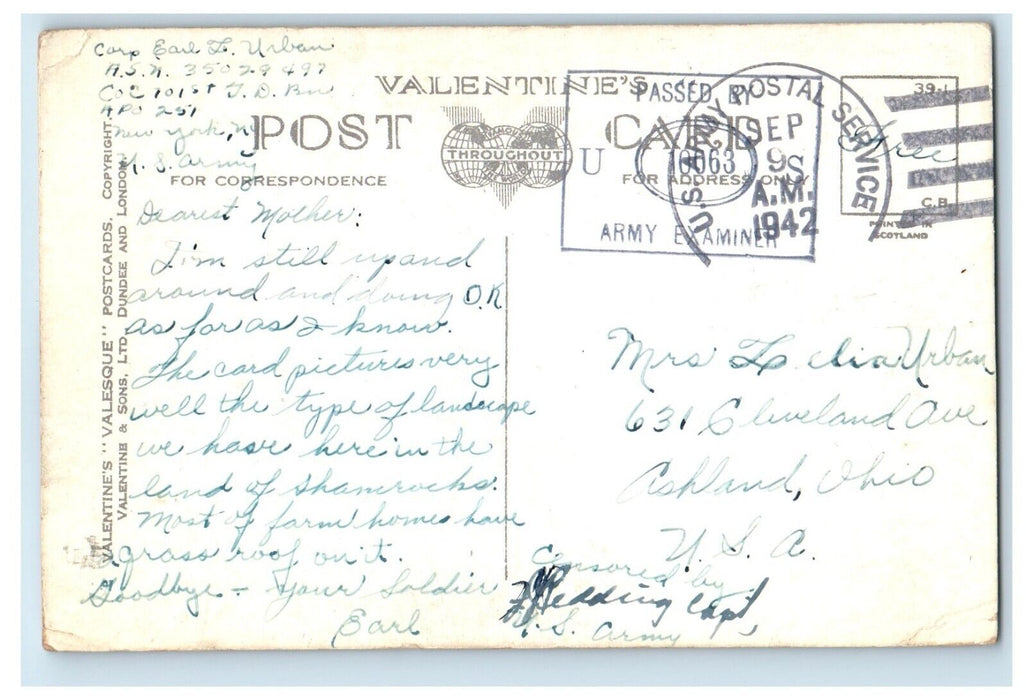 Corp Earl L. Urban
A.S.N. 35029497
Co C 101st T. D. Bn
APO 251
New York, NY
U. S. Army
VALENTINE'S
POST CARD
THROUGHOUT
U
FOR CORRESPONDENCE
FOR ADDRESS ONLY
PASSED BY
10063
ARMY EXAMINER
U.S. ARMY POSTAL SERVICE
SEP
9 S
A.M.
1942
39-1
Free
G.B.
PRINTED IN
SCOTLAND
VALENTINE'S "VALESQUE" POSTCARDS. COPYRIGHT.
VALENTINE & SONS, LTD. DUNDEE AND LONDON
Dearest Mother:
I'm still up and
around and doing O.K
as far as I know.
The card pictures very
well the type of landscape
we have here in the
land of shamrocks.
Most of farm homes have
grass roof on it.
Goodbye - Your Soldier
Earl
Mrs Urban
631 Cleveland Ave
Ashland, Ohio
U. S. A.
Censored by
Redding Capt,
U. S. Army